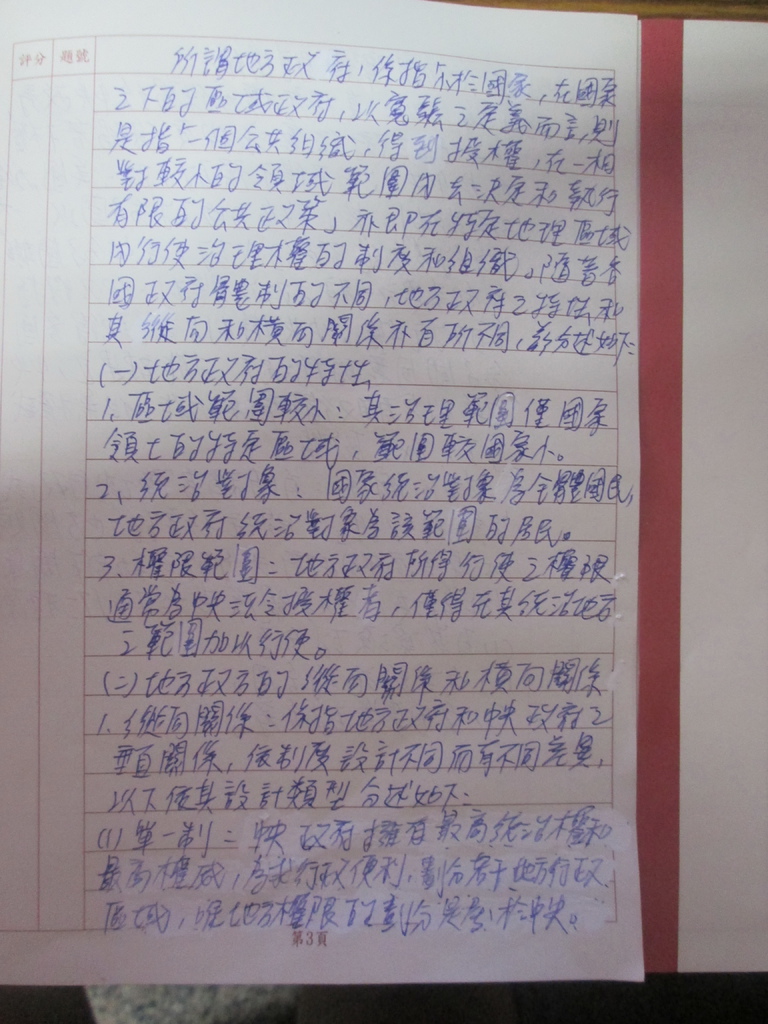 評分 題號
所謂地方政府,係指小於國家,在國家
之下的區域政府,以寬鬆之定義而言,則
是指「一個公共組織,得到授權,在一相
對較小的領域範圍內去決定和執行
有限的公共政策」亦即在特定地理區域
內行使治理權的制度和組織。隨著各
國政府體制的不同,地方政府之特性和
其縱向和橫向關係亦有所不同,茲分述如下:
(一)地方政府的特性
1. 區域範圍較小:其治理範圍僅國家
領土的特定區域,範圍較國家小。
2、統治對象:國家統治對象為全體國民,
地方政府統治對象為該範圍的居民。
3. 權限範圍:地方政府所得行使之權限
通常為中央法令授權者,僅得在其統治地方
之範圍加以行使。
(二)地方政方的縱向關係和橫向關係
1. 縱向關係:係指地方政府和中央政府之
垂直關係,依制度設計不同而有不同差異,
以下依其設計類型分述如下:
(1) 單一制:中央政府擁有最高統治權和
最高權威,為求行政便利,劃分若干地方行政
區域,地方權限的劃分是於中央。
第3頁